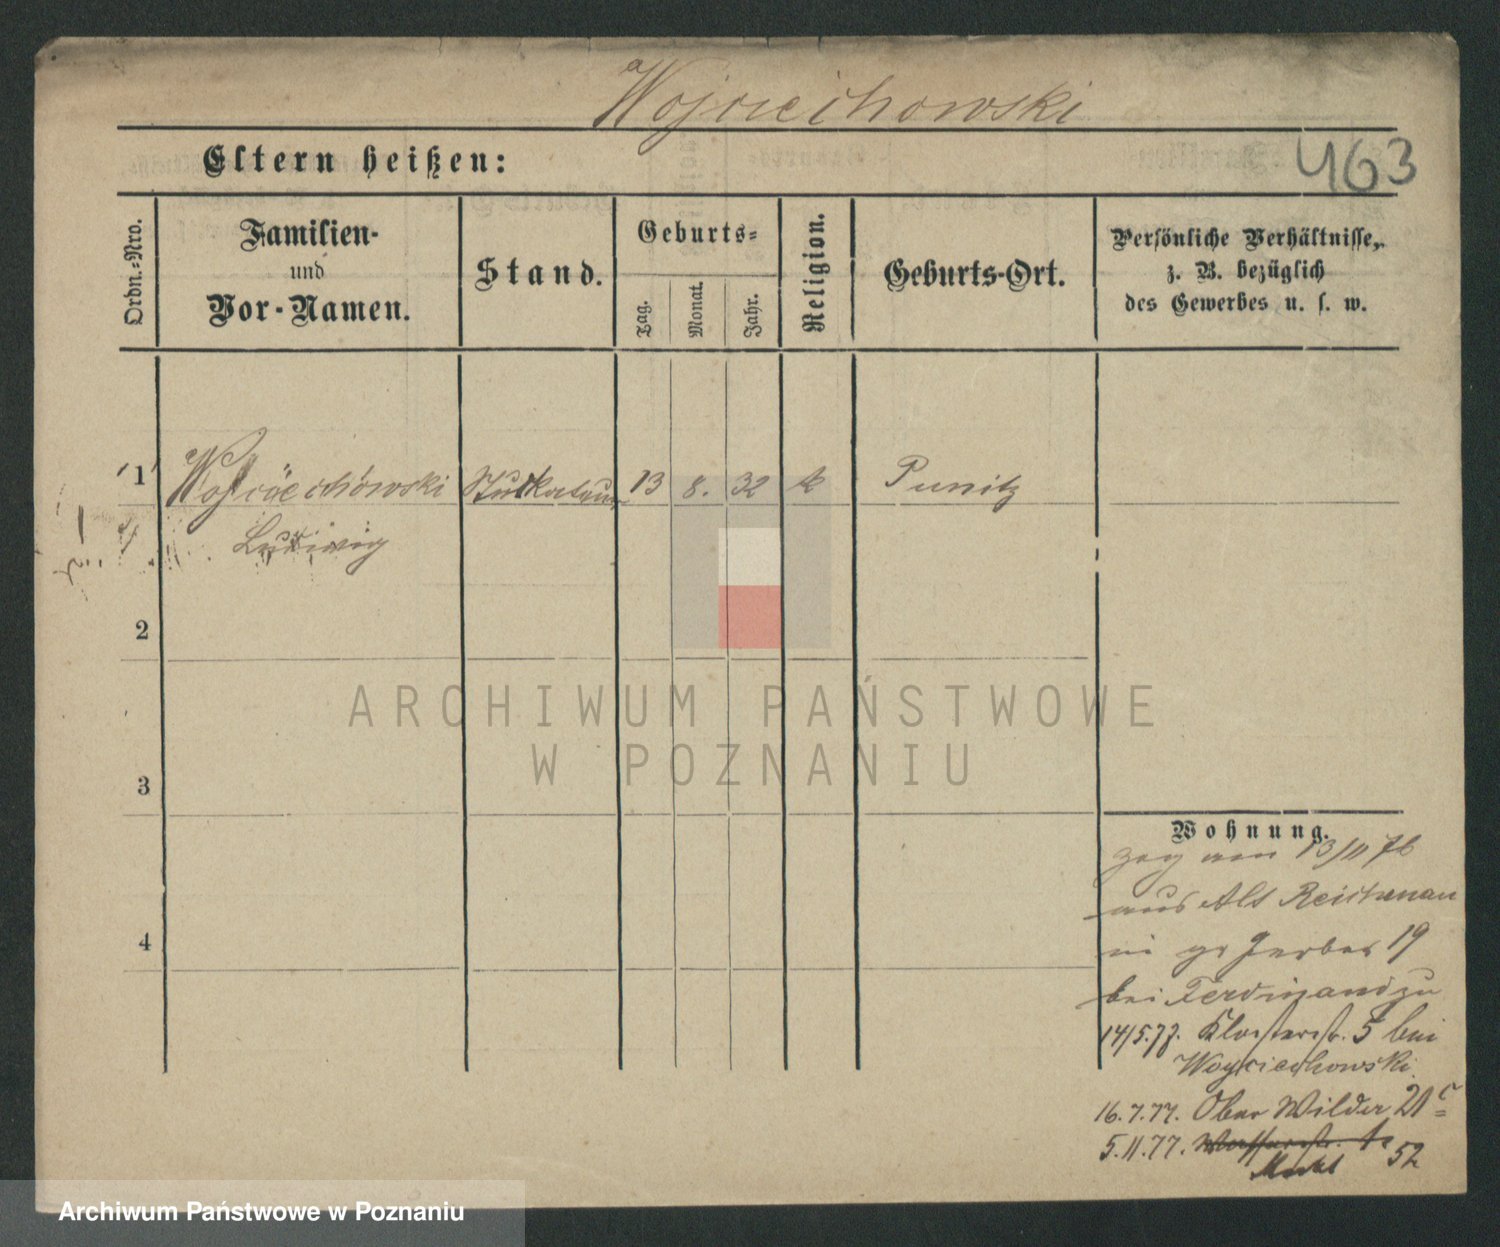 Wojciechowski
463
Eltern heißen:
Ordn.-Nro.
Familien-
und
Vor-Namen.
Stand.
Geburts-
Tag.
Monat.
Jahr.
Religion.
Geburts-Ort.
Persönliche Verhältnisse,
z. B. bezüglich
des Gewerbes u. s. w.
1
Wojciechowski
Stukateur
13
8.
32
k
Punitz
Ludwig
2
3
4
Wohnung.
zog am 13/11 76
aus Alt Reichenau
in gr Gerber 19
bei Ferdinand zu
14/5.77. Klosterstr. 5 bei
Woyciechowski.
16.7.77. Ober Wilda 21
5.11.77.
Markt 52
ARCHIWUM PAŃSTWOWE
W POZNANIU
Archiwum Państwowe w Poznaniu